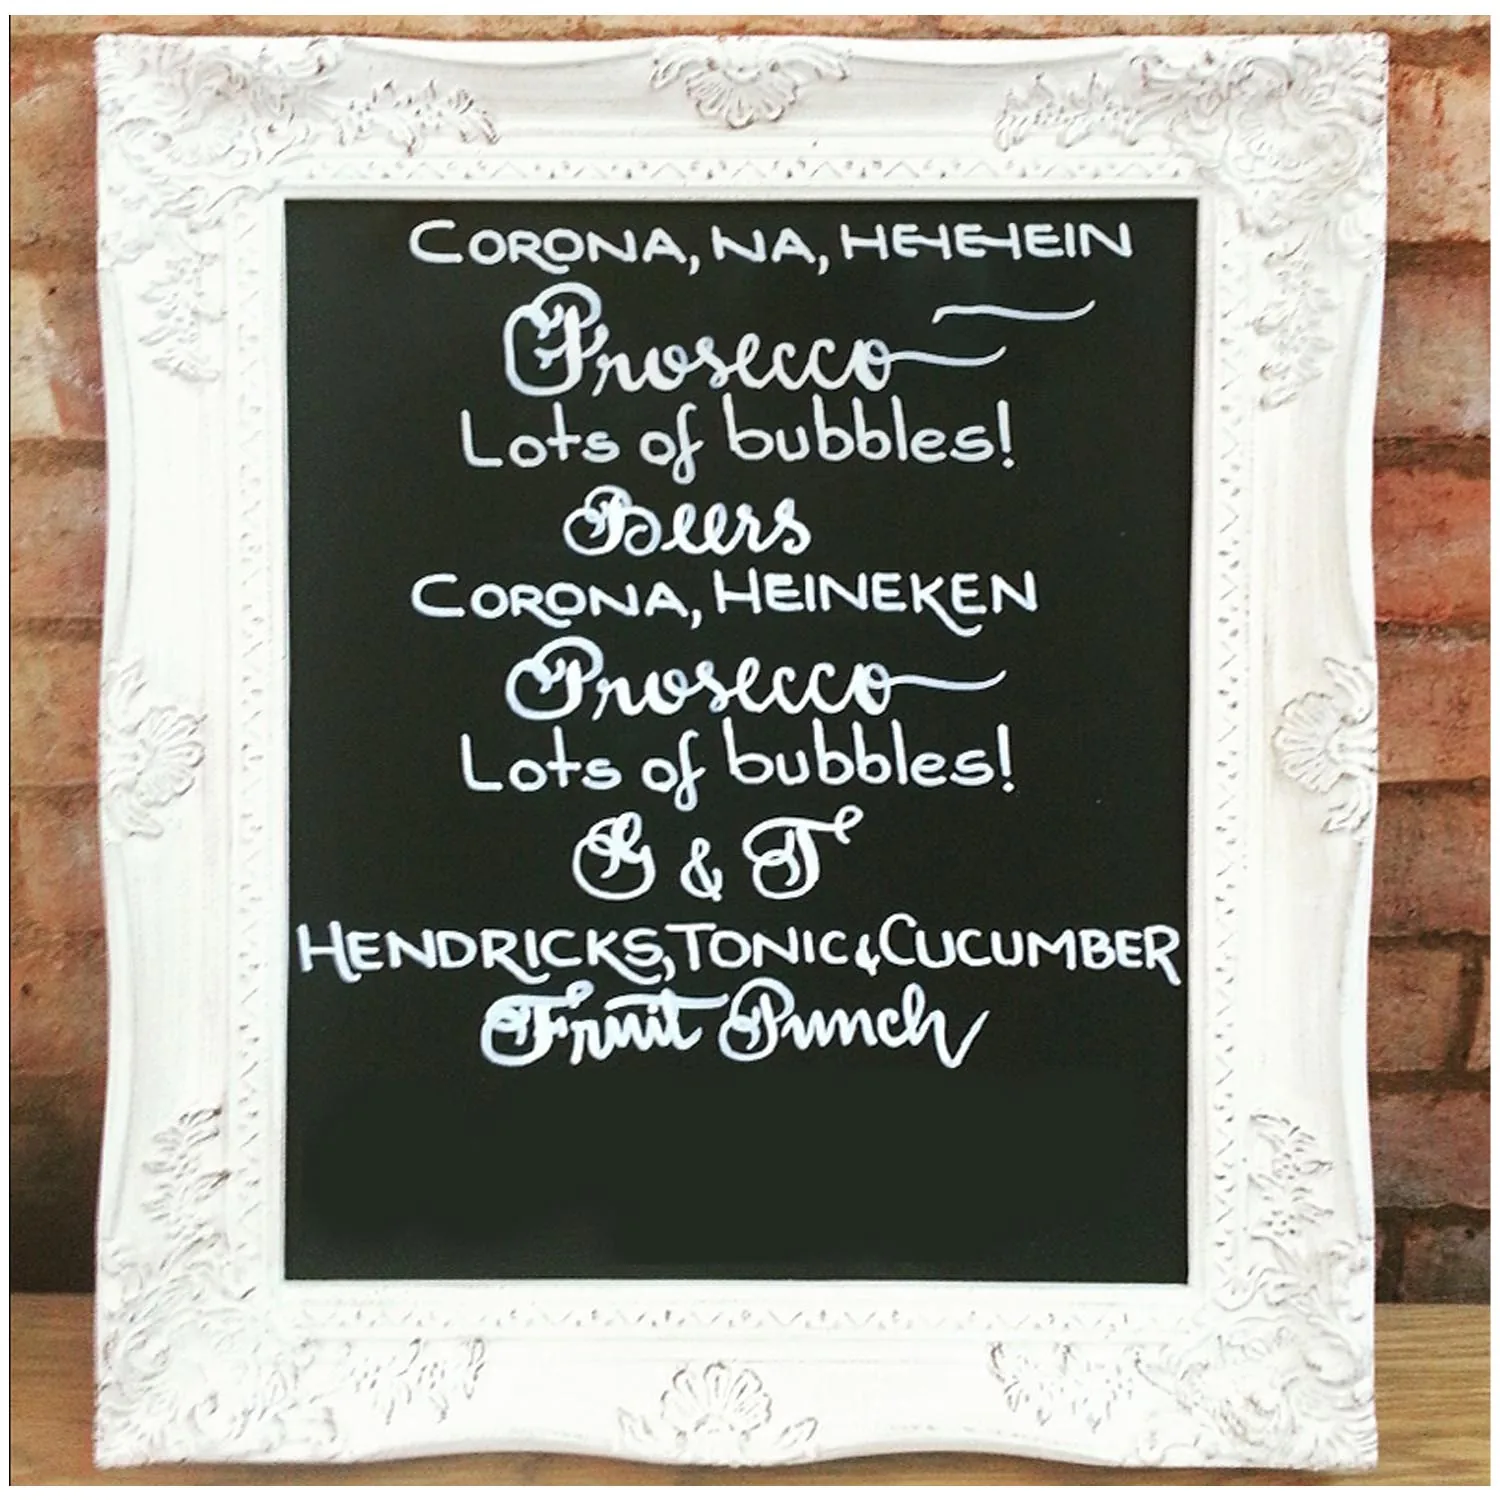 CORONA, NA, HEHEHEIN
Prosecco
Lots of bubbles!
Beers
CORONA, HEINEKEN
Prosecco
Lots of bubbles!
G & T
HENDRICKS, TONIC & CUCUMBER
Fruit Punch